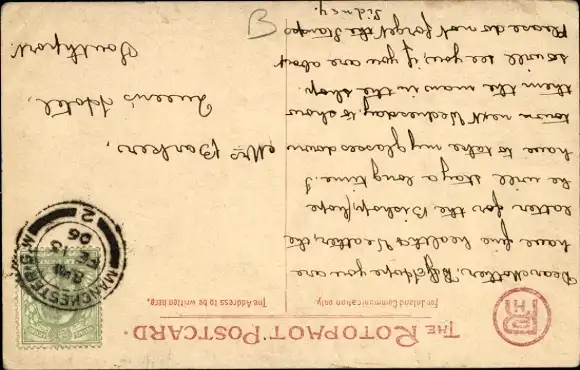 THE ROTOPHOT POSTCARD.
For Inland Communication only.
The Address to be written here.
R
PH
Dear Mother, I hope you are
have fine health & weather, the
latter for the Bishop, hope
he will stay a long time. I
have to take my glasses down
town next Wednesday, to show
them the man in the shop.
so will see you, if you are about
Please do not forget the stamps
Sidney.
Mrs Parkers,
Queen's Hotel,
Southport.
B
MANCHESTER
2
06